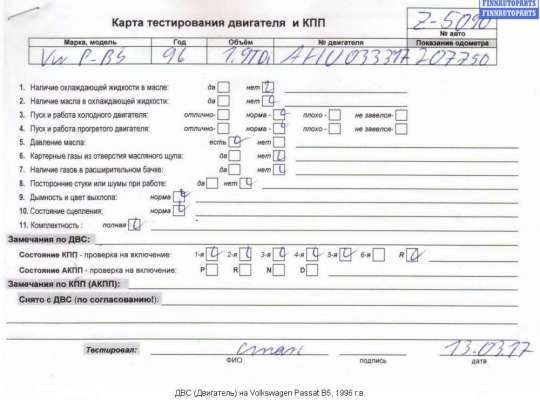 FINNAUTOPARTS
Карта тестирования двигателя и КПП
Z-5090
№ авто
Марка, модель Год Объём № двигателя Показание одометра
VW P-B5 96 1.9TDi 207750
1. Наличие охлаждающей жидкости в масле: да нет
2. Наличие масла в охлаждающей жидкости: да нет
3. Пуск и работа холодного двигателя: отлично- норма - плохо - не завелся-
4. Пуск и работа прогретого двигателя: отлично- норма - плохо - не завелся-
5. Давление масла: есть нет
6. Картерные газы из отверстия масляного щупа: да нет
7. Наличие газов в расширительном бачке: да нет
8. Посторонние стуки или шумы при работе: да нет
9. Дымность и цвет выхлопа: норма
10. Состояние сцепления: норма
11. Комплектность : полная
Замечания по ДВС:
Состояние КПП - проверка на включение: 1-я 2-я 3-я 4-я 5-я 6-я R
Состояние АКПП - проверка на включение: P R N D
Замечания по КПП (АКПП):
Снято с ДВС (по согласованию!):
Тестировал: 13.03.17
ФИО подпись дата
ДВС (Двигатель) на Volkswagen Passat B5, 1996 г.в.